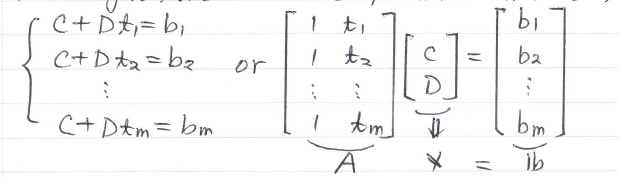 C + Dt₁ = b₁
C + Dt₂ = b₂
⋮
C + Dtm = bm
or
[ 1 t₁ ; 1 t₂ ; ⋮ ⋮ ; 1 tm ] [ C ; D ] = [ b₁ ; b₂ ; ⋮ ; bm ]
⇓
A x = b